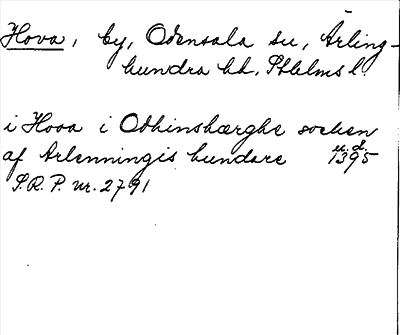 Hova, by, Odensala sn, Ärling-
hundra hd, Sthlms l.
i Hova i Odhinshærghe sochen
af Arlenningis hundare u.d. 1395
S.R.P. nr. 2791